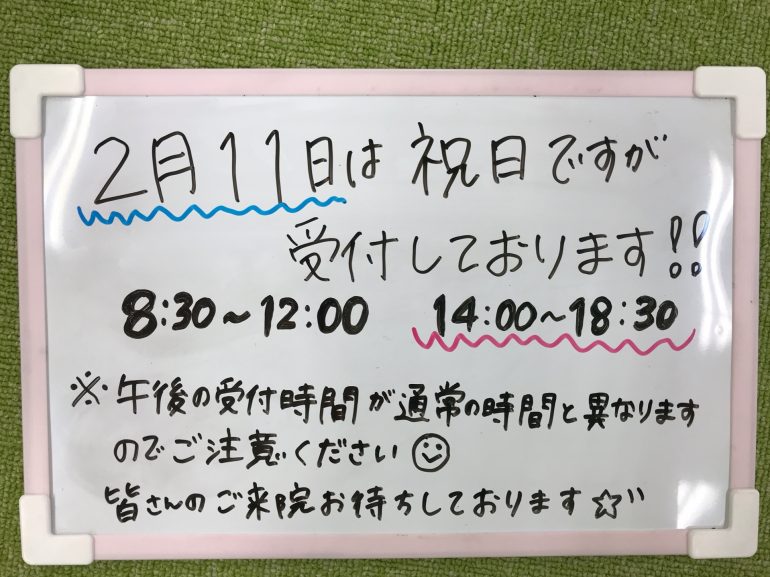 2月11日は 祝日ですが
受付しております!!
8:30～12:00 14:00～18:30
※午後の受付時間が通常の時間と異なります
のでご注意ください☺
皆さんのご来院お待ちしております☆"